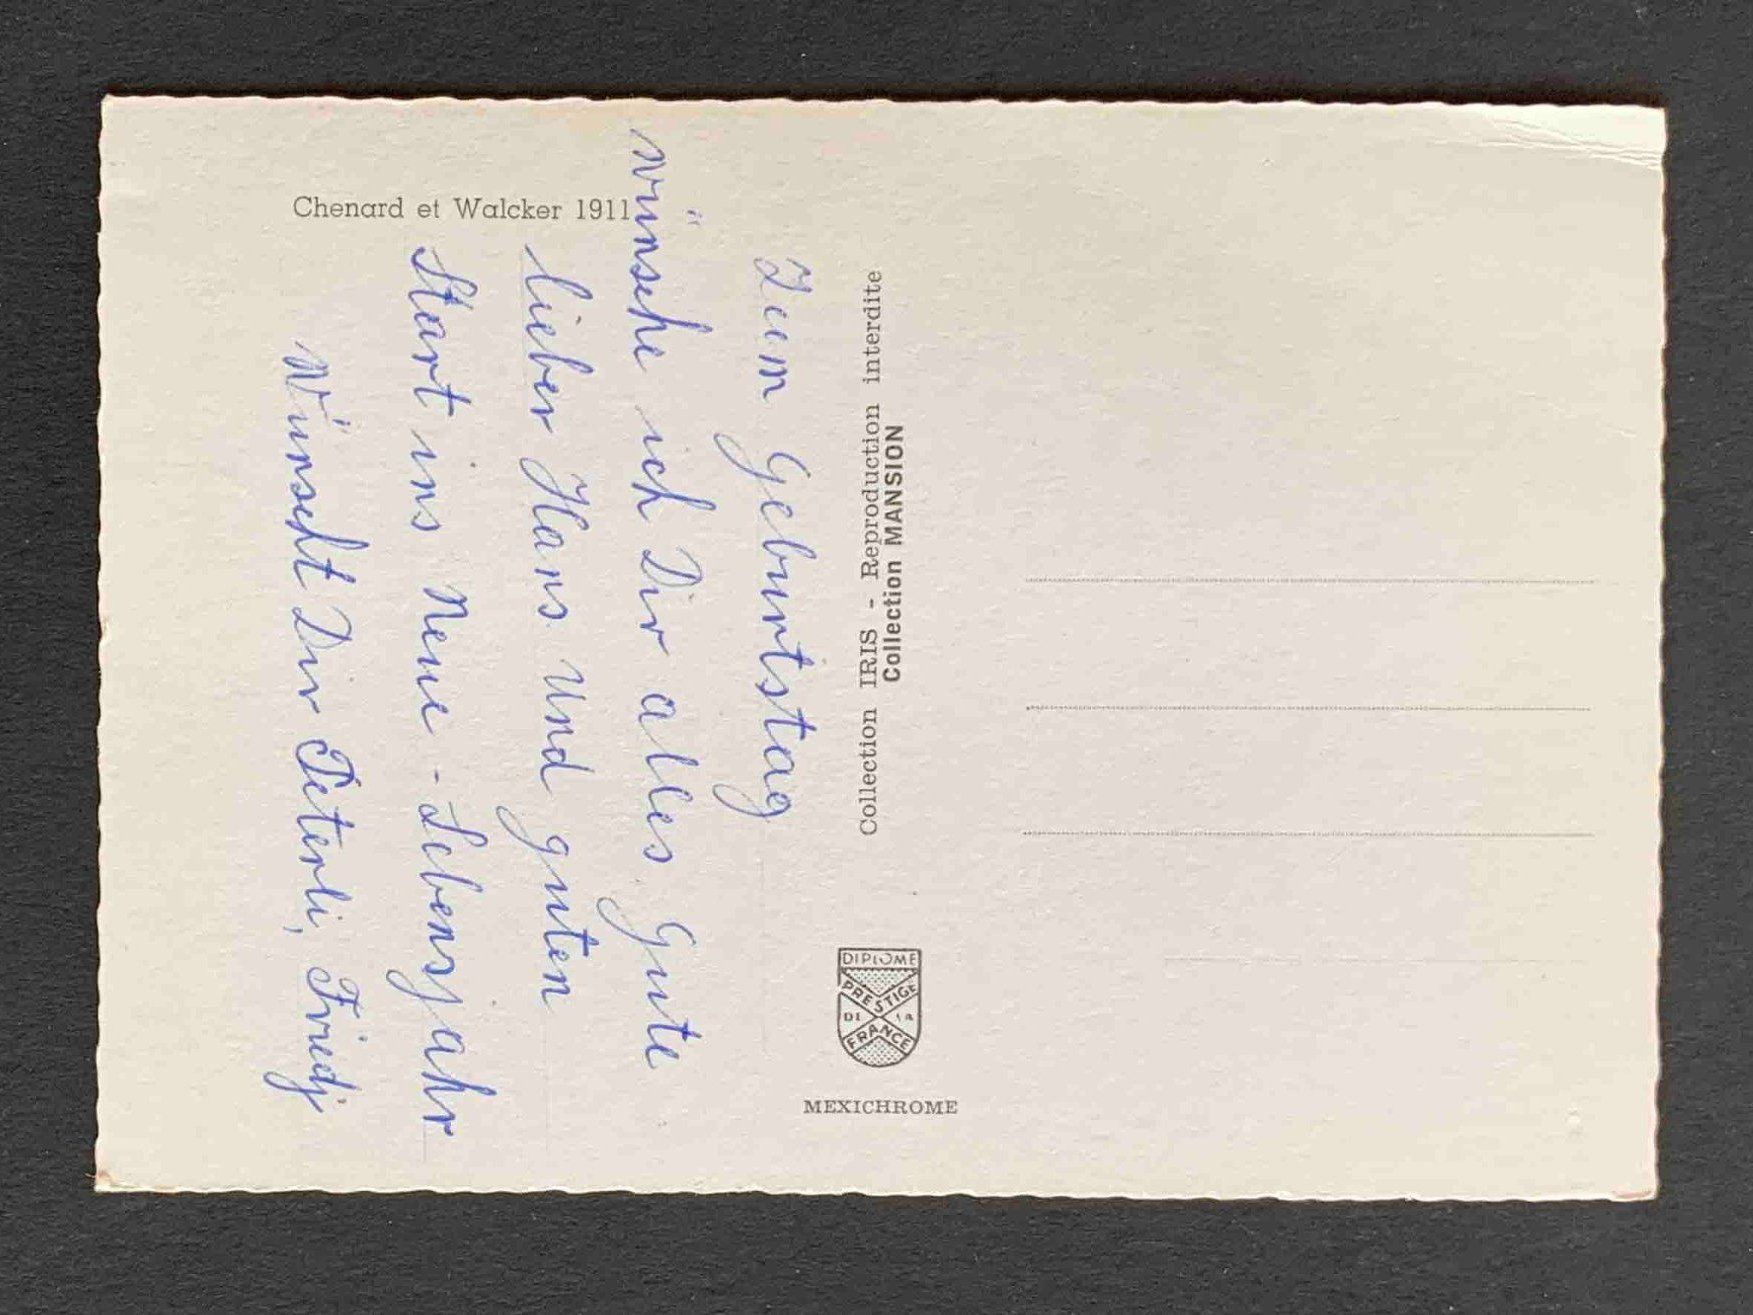 Chenard et Walcker 1911
Zum Geburtstag
wünsche ich Dir alles Gute
lieber Hans und guten
Start ins Neue-Lebensjahr
Wünscht Dir Peterli, Friedj
Collection IRIS - Reproduction interdite
Collection MANSION
DIPLOME
PRESTIGE
DE LA
FRANCE
MEXICHROME